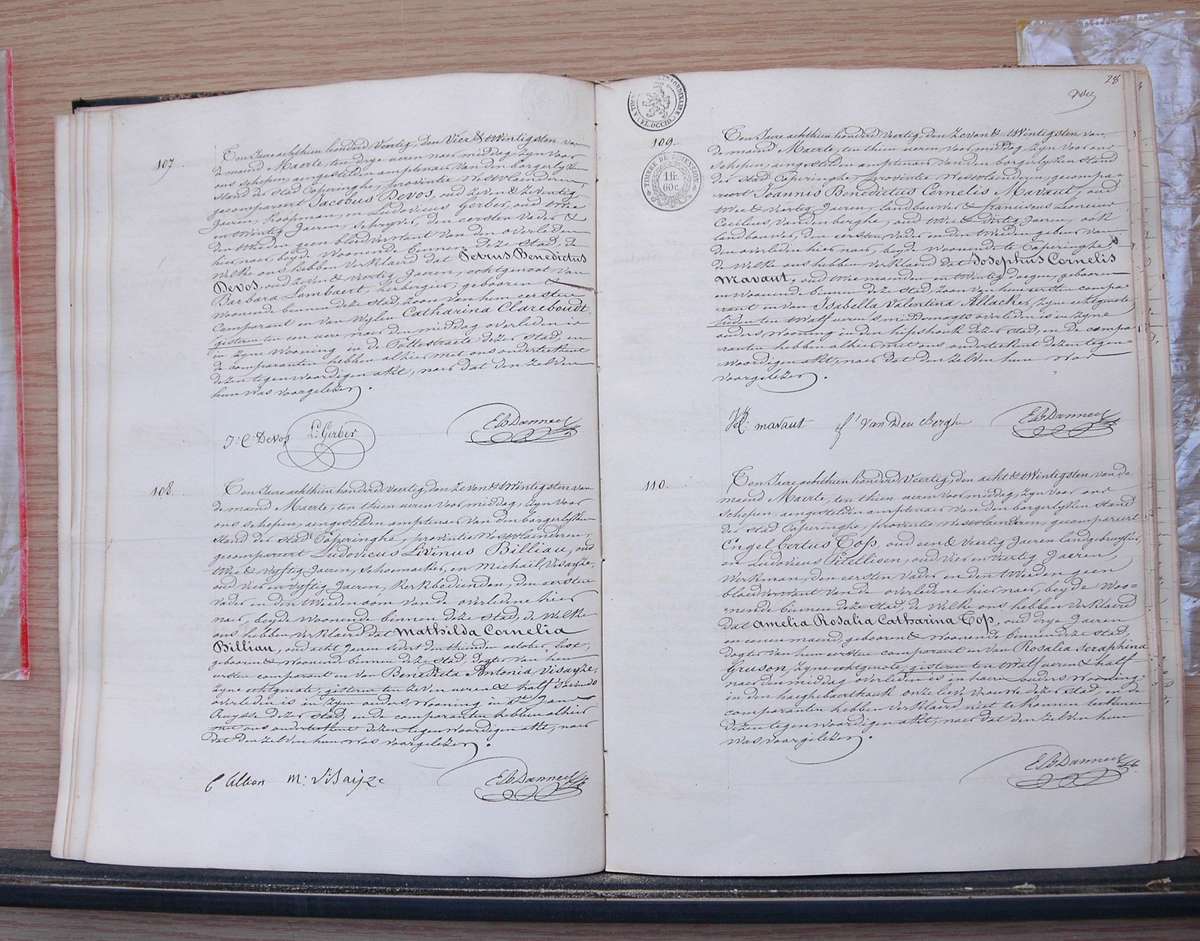 107.
Ten Jaere achthien honderd veertig, den Vier & twintigsten van
de maand Maerte, ten drye ueren naer middag zyn voor
ons schepen aengestelden amptenaer van den borgerlyken
Stand der stad Poperinghe, provintie Westvlaenderen,
gecompareert Jacobus Devos, oud zeven & zeventig
Jaeren, Koopman, en Ludovicus Gerber, oud
twintig Jaeren, Schryver, den eersten vader &
den tweeden geen bloedverwant van den overleden
hier naer, beyde Woonende binnen deze Stad, de
Welke ons hebben Verklaerd dat Petrus Benedictus
Devos, oud zeven & veertig Jaeren, echtgenoot van
Barbara Lambaert, herbergier, gebooren &
Woonende binnen deze stad zoon van hem eersten
Comparant en van Wylen Catharina Clareboudt,
gisteren ten een uere naer den middag overleden is
in zyne Wooning in de Pottestraete dezer stad, en
de comparanten hebben alhier met ons onderteekent
dezen tegenwoordigen akt, naer dat den zelven
hun Was voorgelezen.
J: C Devos L. Gerber
108.
Ten Jaere achthien honderd veertig, den Zeven & twintigsten van
de maand Maerte, ten thien ueren voor middag, zyn voor
ons schepen, aengestelden amptenaer van den borgerlyken
stand der stad Poperinghe, provintie Westvlaenderen,
gecompareert Ludovicus Livinus Billiau, oud
twee & vyftig Jaeren, Schoemaeker, en Michaël Visayze,
oud vier en vyftig Jaeren, Kerkbedienden, den eersten
vader en den tweeden oom van de overledene hier
naer, beyde Woonende binnen deze Stad, de Welke
ons hebben Verklaerd dat Mathilda Cornelia
Billiau, oud acht Jaeren sedert den thienden october, lest,
gebooren & Woonende binnen deze Stad, dogter van hem
eersten comparant en van Benedicta Antonia Visayze,
zyne echtgenote, gisteren ten zeven ueren & half s'avonds
overleden is in zyne ouders Wooning in St Jans
Cruyste dezer stad, en de comparanten hebben alhier
met ons onderteekent dezen tegenwoordigen akt, naer
dat den zelven hun Was voorgelezen.
m: Visaijze
28
109.
Ten Jaere achthien honderd Veertig, den Zeven & twintigsten van
de maand Maerte, ten thien ueren voor middag zyn voor ons
schepen, aengestelden amptenaer van den borgerlyken Stand
der stad Poperinghe, provintie Westvlaenderen, gecompa-
reert Joannis Benedictus Cornelis Mavaut, oud
twee & veertig Jaeren, landbouwer, & franciscus Laureins
Cecilius Vandenberghe, oud twee & dertig Jaeren, ook
landbouwer, den eersten vader en den tweeden gebuer van
den overleden hier naer, beyde Woonende te Poperinghe,
de Welke ons hebben Verklaerd dat Josephus Cornelis
Mavaut, oud en twintig dagen, gebooren
en Woonende binnen deze stad zoon van hem eersten compa-
rant en van Isabella Valentina Allacker, zyne echtgenote
gisteren ten twalf ueren s'middernagts overleden is in zyne
ouders, Wooning in den hipshoek dezer stad, en de compa-
ranten hebben alhier met ons onderteekent dezen tegen-
woordigen akt, naer dat den Zelven hun Was
voorgelezen.
mavaut f' Van Den Berghe
110.
Ten Jaere achthien honderd Veertig, den acht & twintigsten van de
maend Maerte, ten thien ueren voor middag, zyn voor ons
schepen, aengestelden amptenaer van den borgerlyken Stand
der stad Poperinghe, provintie Westvlaenderen, gecompareert
Engelbertus Top, oud een & veertig Jaeren
en Ludovicus oud vier en veertig Jaeren
Werkman, den eersten vader en den tweeden geen
bloedverwant van de overledene hier naer, beyde Woo-
nende binnen deze stad, de Welke ons hebben verklaerd
dat Amelia Rosalia Catharina Top, oud drye Jaeren
en eenen maend, gebooren & Woonende binnen deze Stad,
dogter van hem eersten comparant en van Rosalia Seraphina
Gruson, zyne echtgenote, gisteren ten twalf ueren & half
naer den middag overleden is in haere ouders Wooning
in den onze lieve Vrouwe dezer stad en de
comparanten hebben verklaerd niet te konnen teekenen
dezen tegenwoordigen akt, naer dat den zelven hun
Was voorgelezen.